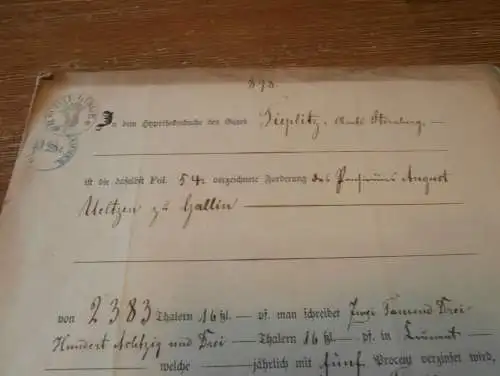 898.
In dem Hypothekenbuche des Gutes Zieplitz, Amts Sternberg.
ist die daselbst Fol. 54, verzeichnete Forderung des August
Ueltzen zu Gallin
von 2383 Thalern 16 ßl. — vf. man schreibet Zwei Tausend Drei
Hundert Achtzig und Drei — Thaler 16 ßl. — vf. in
welche — jährlich mit fünf Procent verzinset wird,